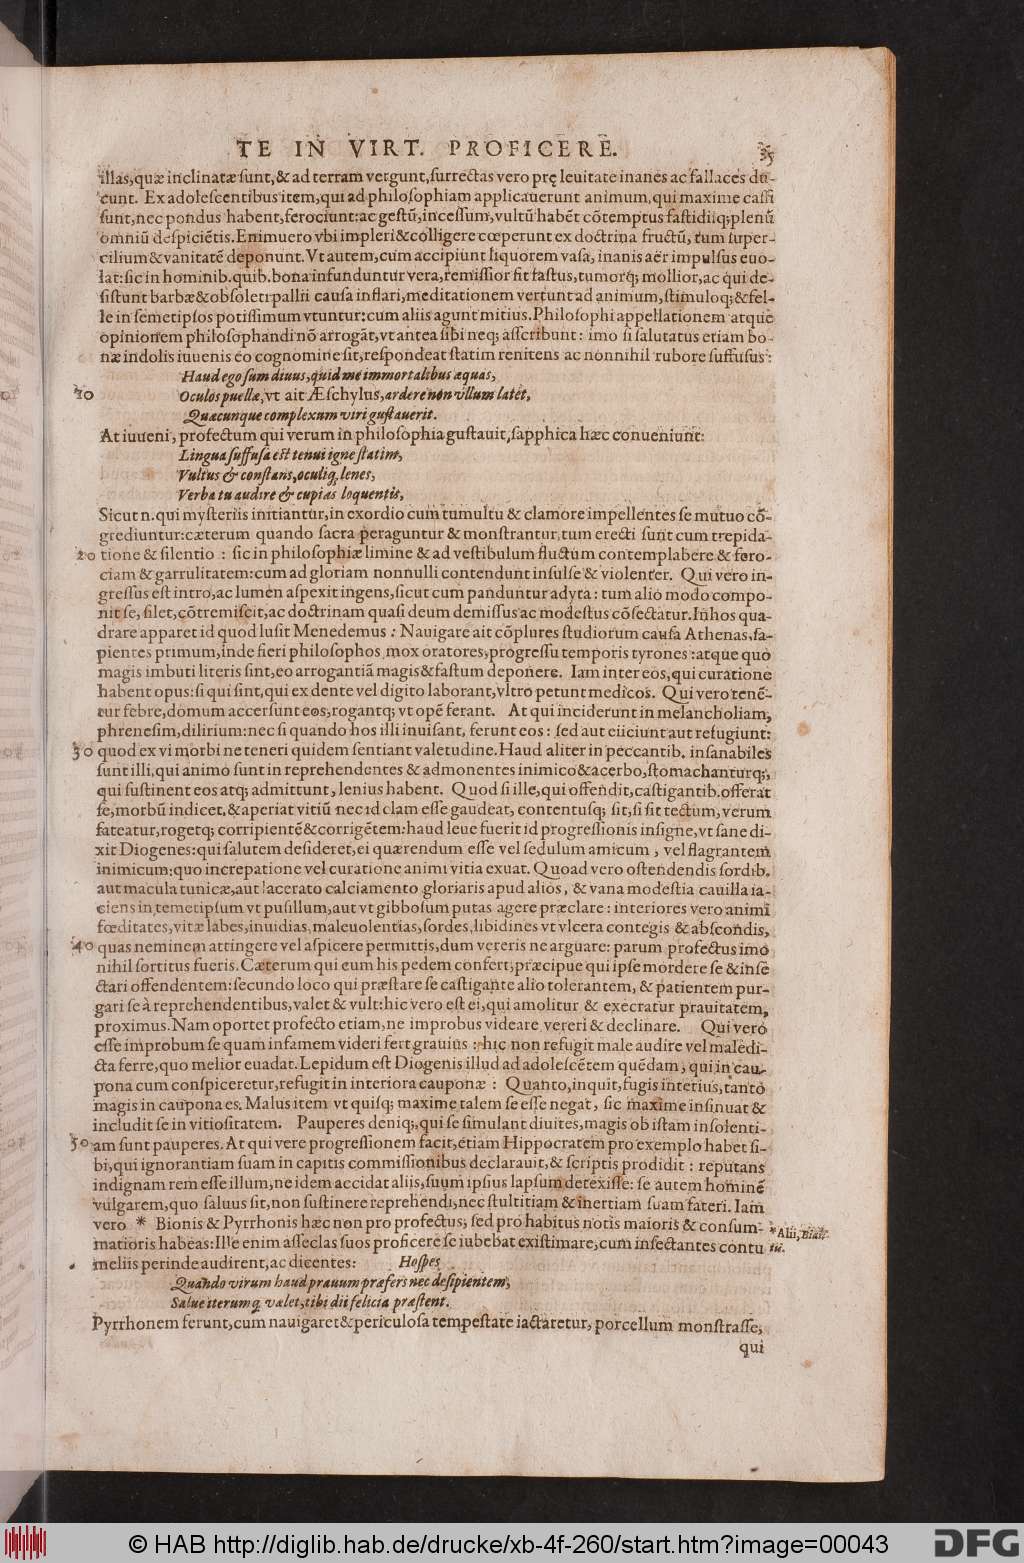 TE IN VIRT. PROFICERE. 35
illas,quæ inclinatæ sunt,& ad terram vergunt,surrectas vero prę leuitate inanes ac fallaces du-
cunt. Ex adolescentibus item,qui ad philosophiam applicauerunt animum,qui maxime cassi
sunt,nec pondus habent,ferociunt:ac gestũ,incessum,vultũ habẽt cõtemptus fastidiiq;plenũ
omniũ despiciẽtis.Enimuero vbi impleri&colligere cœperunt ex doctrina fructũ,tum super-
cilium&vanitatẽ deponunt.Vt autem,cum accipiunt liquorem vasa,inanis aër impulsus euo-
lat:sic in hominib.quib.bona infunduntur vera,remissior fit fastus,tumorq; mollior,ac qui de-
sistunt barbæ&obsoleti pallii causa inflari,meditationem vertunt ad animum,stimuloq;&fel-
le in semetipsos potissimum vtuntur:cum aliis agunt mitius.Philosophi appellationem atque
opinionem philosophandi nõ arrogãt,vt antea sibi neq; asscribunt: imo si salutatus etiam bo-
næ indolis iuuenis eo cognomine sit,respondeat statim renitens ac nonnihil rubore suffusus:
Haud ego sum diuus,quid me immortalibus æquas,
10 Oculos puellæ,vt ait Æschylus,ardere non vllum latet,
Quæcunque complexum viri gustauerit.
At iuueni, profectum qui verum in philosophia gustauit,sapphica hæc conueniunt:
Lingua suffusa est tenui igne statim,
Vultus & constans,oculiq, lenes,
Verba tu audire & cupias loquentis,
Sicut n.qui mysteriis initiantur,in exordio cum tumultu & clamore impellentes se mutuo cõ-
grediuntur:cæterum quando sacra peraguntur & monstrantur,tum erecti sunt cum trepida-
20 tione & silentio : sic in philosophiæ limine & ad vestibulum fluctum contemplabere & fero-
ciam & garrulitatem:cum ad gloriam nonnulli contendunt insulse & violenter. Qui vero in-
gressus est intro,ac lumen aspexit ingens,sicut cum panduntur adyta: tum alio modo compo-
nit se, silet,cõtremiscit,ac doctrinam quasi deum demissus ac modestus cõsectatur.In hos qua-
drare apparet id quod lusit Menedemus : Nauigare ait cõplures studiorum causa Athenas,sa-
pientes primum,inde fieri philosophos,mox oratores,progressu temporis tyrones:atque quo
magis imbuti literis sint,eo arrogantiã magis&fastum deponere. Iam inter eos,qui curatione
habent opus:si qui sint,qui ex dente vel digito laborant,vltro petunt medicos. Qui vero tenẽ-
tur febre,domum accersunt eos,rogantq; vt opẽ ferant. At qui inciderunt in melancholiam,
phrenesim,dilirium:nec si quando hos illi inuisant, ferunt eos: sed aut eiiciunt aut refugiunt:
30 quod ex vi morbi ne teneri quidem sentiant valetudine.Haud aliter in peccantib. insanabiles
sunt illi,qui animo sunt in reprehendentes & admonentes inimico&acerbo,stomachanturq;,
qui sustinent eos atq; admittunt, lenius habent. Quod si ille,qui offendit,castigantib.offerat
se,morbũ indicet,&aperiat vitiũ nec id clam esse gaudeat, contentusq; sit,si sit tectum,verum
fateatur,rogetq; corripientẽ&corrigẽtem:haud leue fuerit id progressionis insigne,vt sane di-
xit Diogenes:qui salutem desideret,ei quærendum esse vel sedulum amicum , vel flagrantem
inimicum:quo increpatione vel curatione animi vitia exuat. Quoad vero ostendendis sordib.
aut macula tunicæ,aut lacerato calciamento gloriaris apud alios, & vana modestia cauilla ia-
ciens in temetipsum vt pusillum,aut vt gibbosum putas agere præclare: interiores vero animi
fœditates,vitæ labes,inuidias,maleuolentias,sordes,libidines vt vlcera contegis & abscondis,
40 quas neminem attingere vel aspicere permittis,dum vereris ne arguare: parum profectus imo
nihil sortitus fueris.Cæterum qui cum his pedem confert,præcipue qui ipse mordere se &insẽ
ctari offendentem:secundo loco qui præstare se castigante alio tolerantem, & patientem pur-
gari se à reprehendentibus,valet & vult:hic vero est ei,qui amolitur & execratur prauitatem,
proximus.Nam oportet profecto etiam,ne improbus videare,vereri & declinare. Qui vero
esse improbum se quam infamem videri fert grauius : hic non refugit male audire vel maledi-
cta ferre,quo melior euadat.Lepidum est Diogenis illud ad adolescẽtem quẽdam, qui in cau-
pona cum conspiceretur,refugit in interiora cauponæ : Quanto,inquit,fugis interius,tantò
magis in caupona es. Malus item vt quisq; maxime talem se esse negat, sic maxime insinuat &
includit se in vitiositatem. Pauperes deniq;,qui se simulant diuites,magis ob istam insolenti-
50 am sunt pauperes.At qui vere progressionem facit,etiam Hippocratem pro exemplo habet si-
bi,qui ignorantiam suam in capitis commissionibus declarauit,& scriptis prodidit : reputans
indignam rem esse illum,ne idem accidat aliis,suum ipsius lapsum detexisse: se autem hominẽ
vulgarem,quo saluus sit,non sustinere reprehendi,nec stultitiam & inertiam suam fateri. Iam
vero * Bionis & Pyrrhonis hæc non pro profectus, sed pro habitus notis maioris & consum-
*Alii, Bian-
matioris habeas:Ille enim asseclas suos proficere se iubebat existimare,cum insectantes contu
tii.
meliis perinde audirent,ac dicentes: Hospes
Quando virum haud prauum præfers nec desipientem,
Salue iterumq, valet,tibi dii felicia præstent.
Pyrrhonem ferunt,cum nauigaret&periculosa tempestate iactaretur, porcellum monstrasse,
qui
© HAB http://diglib.hab.de/drucke/xb-4f-260/start.htm?image=00043
DFG